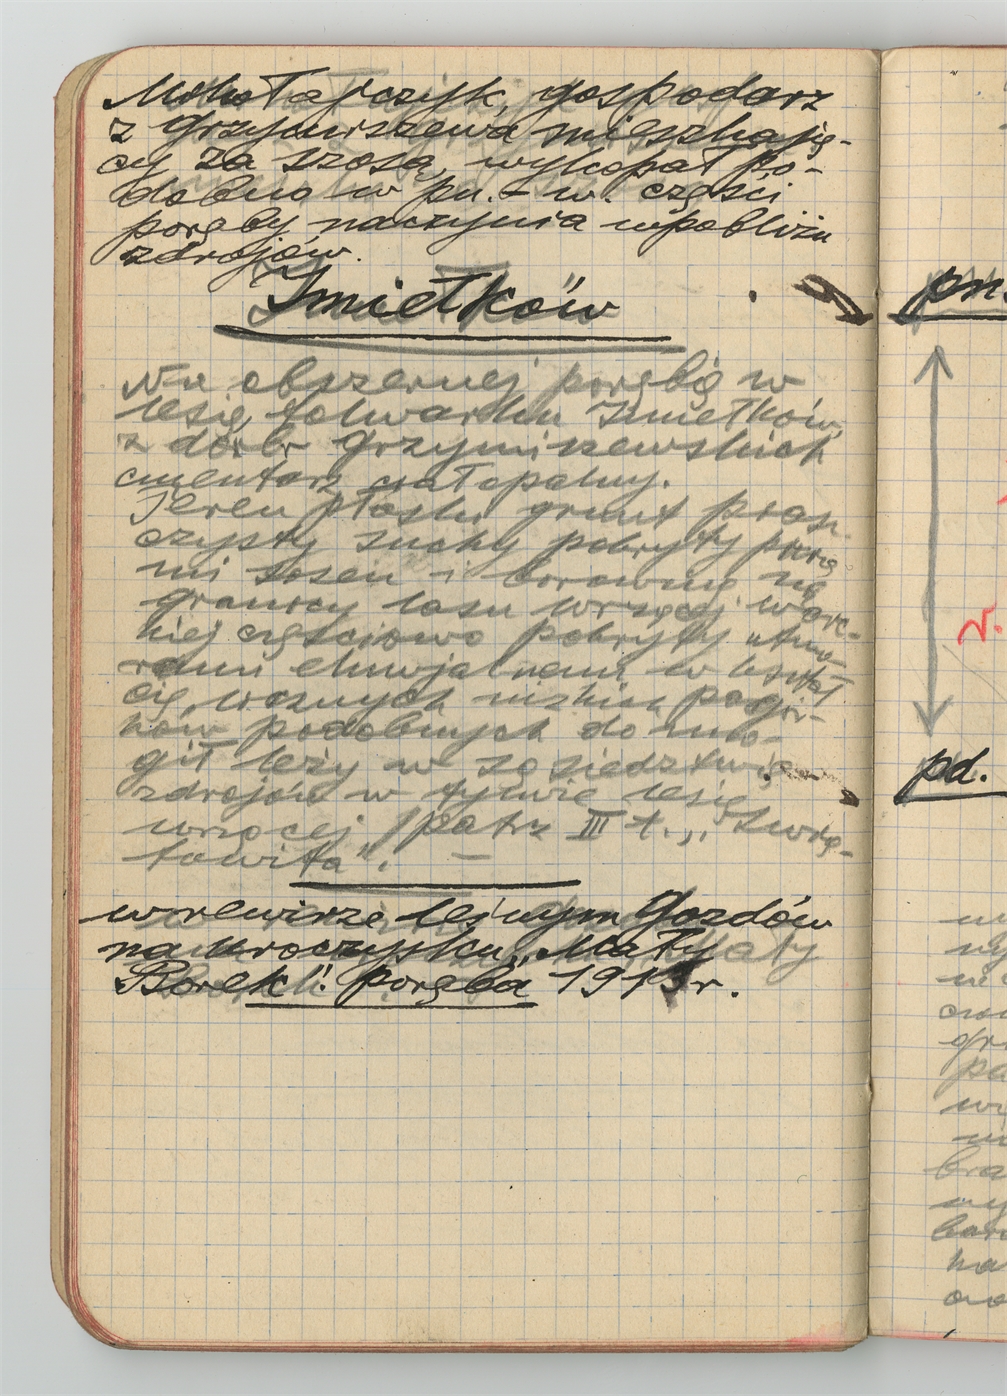 Mikołajczyk, gospodarz
z Grzymiszewa mieszkają-
cy za szosą, wykopał po-
dobno w pn.-w. części
poręby naczynia wpobliżu
zdrojów.
Imiełków
Na obszernej porębie w
lesie folwarku Imiełków,
z dóbr grzymiszewskich
cmentarz całopalny.
Teren płaski grunt piasz-
czysty suchy pokryty pnia-
mi sosen i borowiną na
granicy lasu wrzącej
niej częściowo pokryty utwo-
rami eluwjalnemi w kształ
cie licznych nizkich pagór-
ków podobnych do mo-
gił leży w sąsiedztwie
zdrojów w tymże lesie
wrzącej /patrz III t. „Świa-
towita”. —
w rewirze leśnym Gozdów
na uroczysku „Mały
Borek”. poręba 1913 r.
pn.
v.
pd.